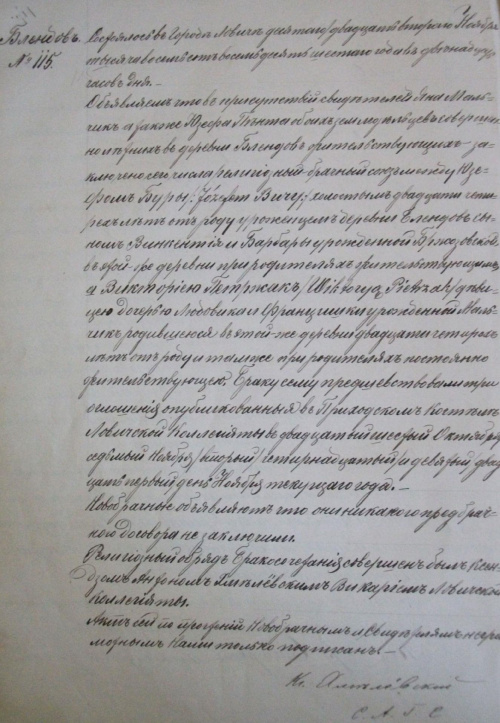 Блендовъ.
№ 115.
Состоялось въ Городѣ Ловичъ десятаго/двадцать втораго Ноября
тысяча восемьсотъ восемьдесятъ шестаго года въ двѣнадцать
часовъ дня. —
Объявляемъ что въ присутствіи свидѣтелей Яна Маль-
чикъ а также Юзефа Пѣнта обоихъ земледѣльцевъ совершен-
нолѣтнихъ въ деревни Блендовъ жительствующихъ – за-
ключено сего числа религіозный брачный союзъ между Юзе-
фомъ Буры /Józefem Bury/ холостымъ двадцати четы-
рехъ лѣтъ отъ роду уроженцемъ деревни Блендовъ сы-
номъ Винкентія и Барбары урожденной
въ этой-же деревни при родителяхъ жительствующимъ
а Викторіею Петржакъ /Wiktoryą Pietrzak/ дѣви-
цею дочерью Людовика и Францишки урожденной Маль-
чикъ родившеюся въ этой-же деревни двадцати четырехъ
лѣтъ отъ роду и тамже при родителяхъ постоянно
жительствующей. Браку сему предшествовали три
оглашенія опубликованныя въ Приходскомъ Костелѣ
Ловичской Коллегіяты въ двадцать шестый Октября
седьмый Ноября /вторый/ четырнадцатый/ и девятый двад-
цать первый день Ноября текущаго года. —
Новобрачные объявляютъ что они никакого предбрач-
наго договора не заключили.
Религіозный обрядъ бракосочетанія совершенъ былъ Ксен-
дзомъ Антономъ Хмѣлевскимъ Викаріемъ Ловичской
Коллегіяты.
Актъ сей по прочтеніи Новобрачнымъ и Свидѣтелямъ негра-
мотнымъ Нами только подписанъ. —
Кс. Хмѣлевскій
С. А. Г. С.